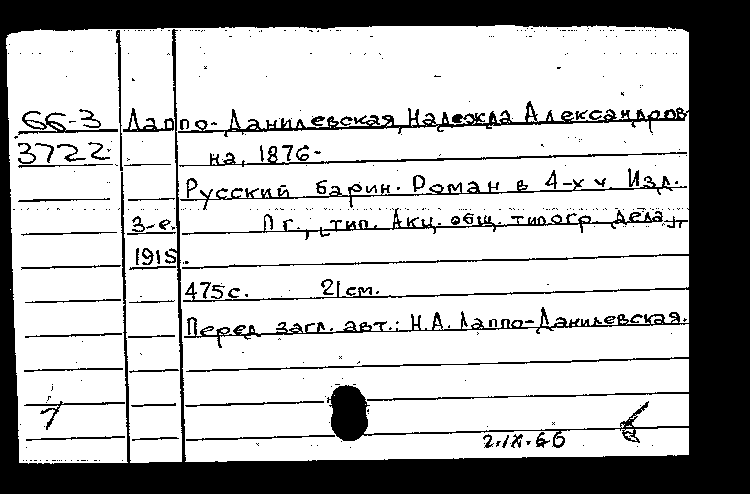 66-3 Лаппо-Данилевская, Надежда Александров-
3722 на, 1876-
Русский барин. Роман в 4-х ч. Изд.
3-е. Пг., [тип. Акц. общ. типогр. дела],
1915.
475 с. 21 см.
Перед загл. авт.: Н.А. Лаппо-Данилевская.
2.IX.66